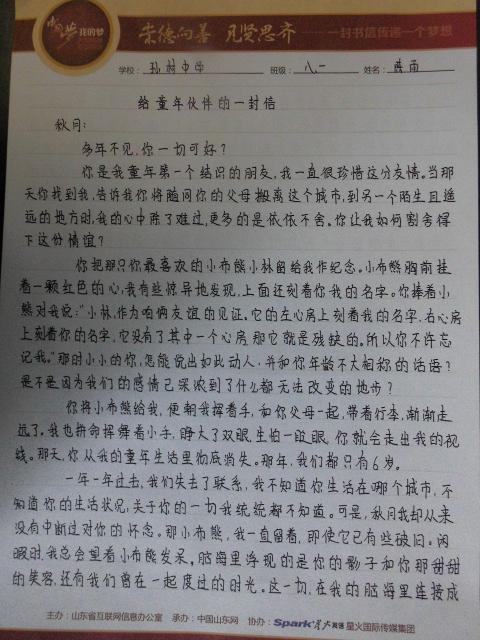 中国梦 我的梦 崇德向善 见贤思齐 一封书信传递一个梦想
学校: 孙村中学 班级: 八.一 姓名:
给童年伙伴的一封信
秋月:
多年不见,你一切可好?
你是我童年第一个结识的朋友,我一直很珍惜这分友情。当那
天你找到我,告诉我你将随同你的父母搬离这个城市,到另一个陌生且遥
远的地方时,我的心中除了难过,更多的是依依不舍。你让我如何割舍得
下这份情谊?
你把那只你最喜欢的小布熊小林留给我作纪念。小布熊胸前挂
着一颗红色的心,我有些惊异地发现,上面还刻着你我的名字。你捧着小
熊对我说:"小林,作为咱俩友谊的见证。它的左心房上刻着我的名字,右心房
上刻着你的名字,它没有了其中一个心房,那它就是残缺的。所以你不许忘
记我。"那时小小的你,怎能说出如此动人,并和你年龄不大相称的话语?
是不是因为我们的感情已深浓到了什么都无法改变的地步?
你将小布熊给我,便朝我挥着手,和你父母一起,带着行李,渐渐走
远了。我也拼命挥舞着小手,睁大了双眼,生怕一眨眼,你就会走出我的视
线。那天,你从我的童年生活里彻底消失。那年,我们都只有6岁。
一年一年过去,我们失去了联系,我不知道你生活在哪个城市,不
知道你的生活状况,关于你的一切我统统都不知道。可是,秋月我却从来
没有中断过对你的怀念。那小布熊,我一直留着,即使它已有些破旧。闲
暇时我总会望着小布熊发呆,脑海里浮现的是你的影子和你那甜甜
的笑容,还有我们曾在一起度过的时光。这一切,在我的脑海里连接成
主办:山东省互联网信息办公室 承办:中国山东网 协办:Spark星火英语 星火国际传媒集团